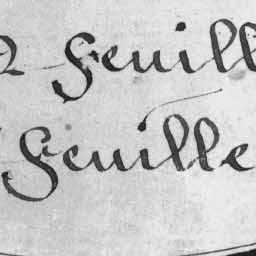 2 feuill
feuille